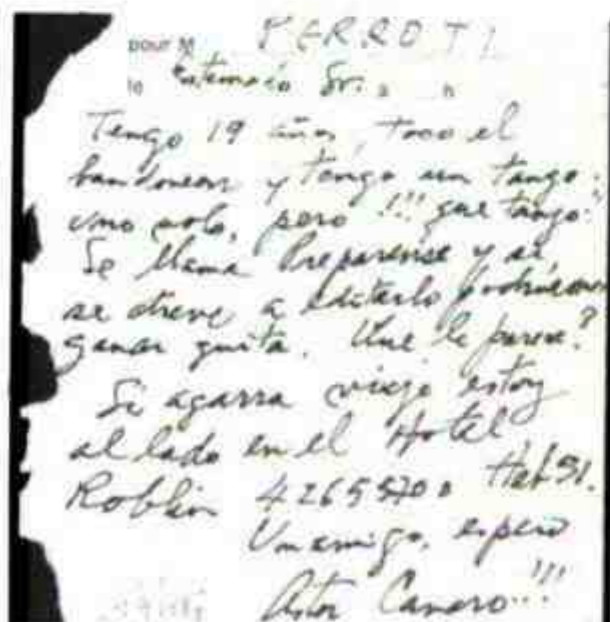 pour M PERROTI
le Estimado Sr: a h
Tengo 19 años, toco el
bandoneon y tengo un tango:
uno solo, pero !!! que tango!!
Se llama Preparense y si
se atreve a editarlo podríamos
ganar guita. Que le parece?
Si agarra viaje estoy
al lado en el Hotel
Roblin 42655700 Hab 51.
Un amigo, espero
Astor Canaro!!!